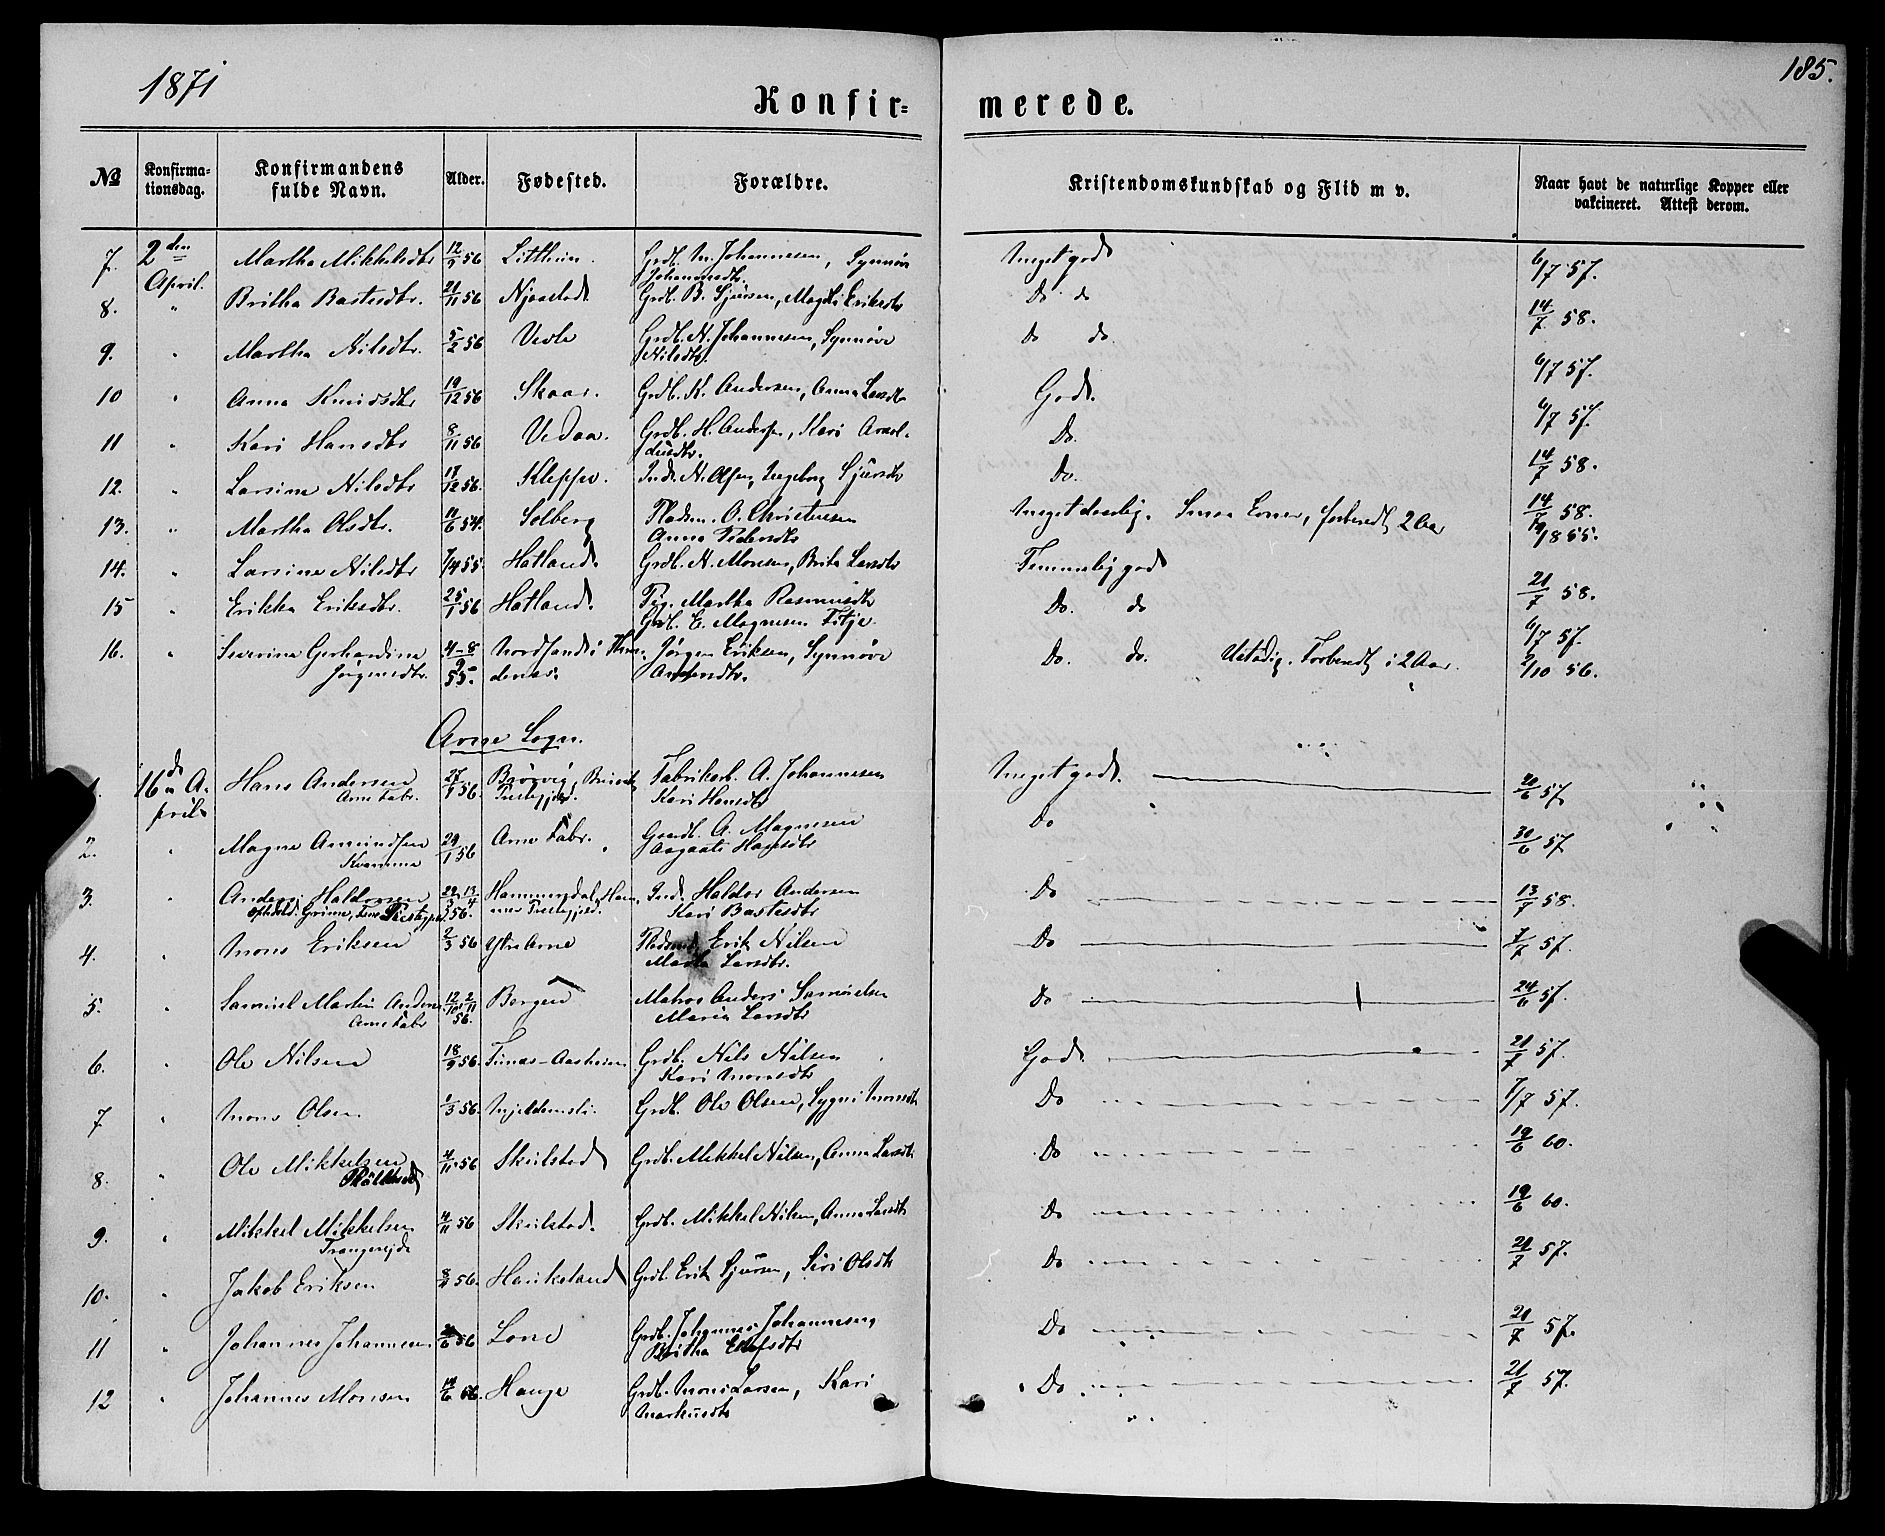 1871
185.
Konfir=
merede.
№ Konfirma-tionsdag. Konfirmandens fulde Navn. Alder. Fødested. Forældre. Kristendomskundskab og Flid m v. Naar havt de naturlige Kopper eller vakcineret. Attest derom.
7. 2den April. Martha Mikkelsdtr 12/9 56 Grdb. M. Johannesen, Synnøv Johannesdtr. Meget godt 6/7 57.
8. " Britha Bastesdtr. 21/11 56 Grdb. B. Sjursen, Magdli Eriksdtr Do do 14/7 58.
9. " Martha Nilsdtr. 5/2 56 Vedle Grdb. N. Johannesen, Synnøve Nilsdtr. Do do. 6/7 57.
10 " Anna Knudsdtr 19/12 56 Skaar. Grdb. K. Andersen, Anna Larsdtr Godt. 6/7 57.
11 " Kari Hansdtr 8/11 56 Vedaa. Grdb. H. Andersen, Kari Do. 14/7 58.
12. " Larsine Nilsdtr 17/12 56. Kleppe. Inds. N. Olsen, Ingeborg Sjursdtr Do. 14/7 58.
13. " Martha Olsdtr. 11/6 54. Solberg Pladsm. O. Christensen Anna Pedersdtr Meget daarlig. Smaa Evner, forberedt 2 Aar 1865.
14. " Larsine Nilsdtr 7/4 55. Hatland. Grdb. N. Monsen, Brita Larsdtr Temmelig godt 21/7 58.
15 " Erikka Eriksdtr. 25/1 56 Hatland. Pig. Martha Rasmusdtr Grdb. E. Magnesen Fitje. Do. do 6/7 57.
16. " Severine Gerhardine Jørgensdtr. 55. Nordfands i Jørgen Eriksen, Synnøve Do. do. Ustadig. Forberedt i 2 Aar. 2/10 56.
Arne Sogn.
1. 16de April Hans Andersen Arne Fabr. 27/1 56. Præstegjeld. Fabrikarb. A. Johannesen Kari Hansdtr Meget godt. 30/6 57
2. " Magne Amundsen Kvamme 29/1 56 Arne Fabr. Gaardb. A. Magnesen Aagaate Hansdtr Do 30/6 57
3. " Anders Haldorsen 56. Præstegjeld. Inds. Haldor Andersen Kari Bastesdtr Do 13/7 58.
4. " Mons Eriksen 2/3 56 Ytre Arne Pladsmd. Erik Nilsen Martha Larsdtr. Do 7/7 57.
5. " Samuel Martin Anders. Arne Fabr 56. Bergen Matros Anders Samuelsen Maria Larsdtr Do 24/6 57.
6. " Ole Nilsen 18/9 56. Grdb. Nils Nilsen Kari Monsdtr Godt. 21/7 57.
7 " Mons Olsen 1/3 56. Mjeldemsli. Grdb. Ole Olsen, Sygni Monsdtr Do 7/7 57.
8. " Ole Mikkelsen 4/11 56 Skulstad Grdb. Mikkel Nilsen, Anna Larsdtr Do 19/6 60.
9. " Mikkel Mikkelsen 4/11 56 Skulstad. Grdb. Mikkel Nilsen, Anna Larsdtr Do 19/6 60.
10. " Jakob Eriksen 56. Haukeland Grdb. Erik Sjursen, Siri Olsdtr Do 21/7 57.
11 " Johannes Johannesen 56 Lone Grdb. Johannes Johannesen, Britha Do 21/7 57.
12 " Johannes Monsen 56. Hauge Grdb. Mons Larsen, Kari Markusdtr Do. 21/7 57.